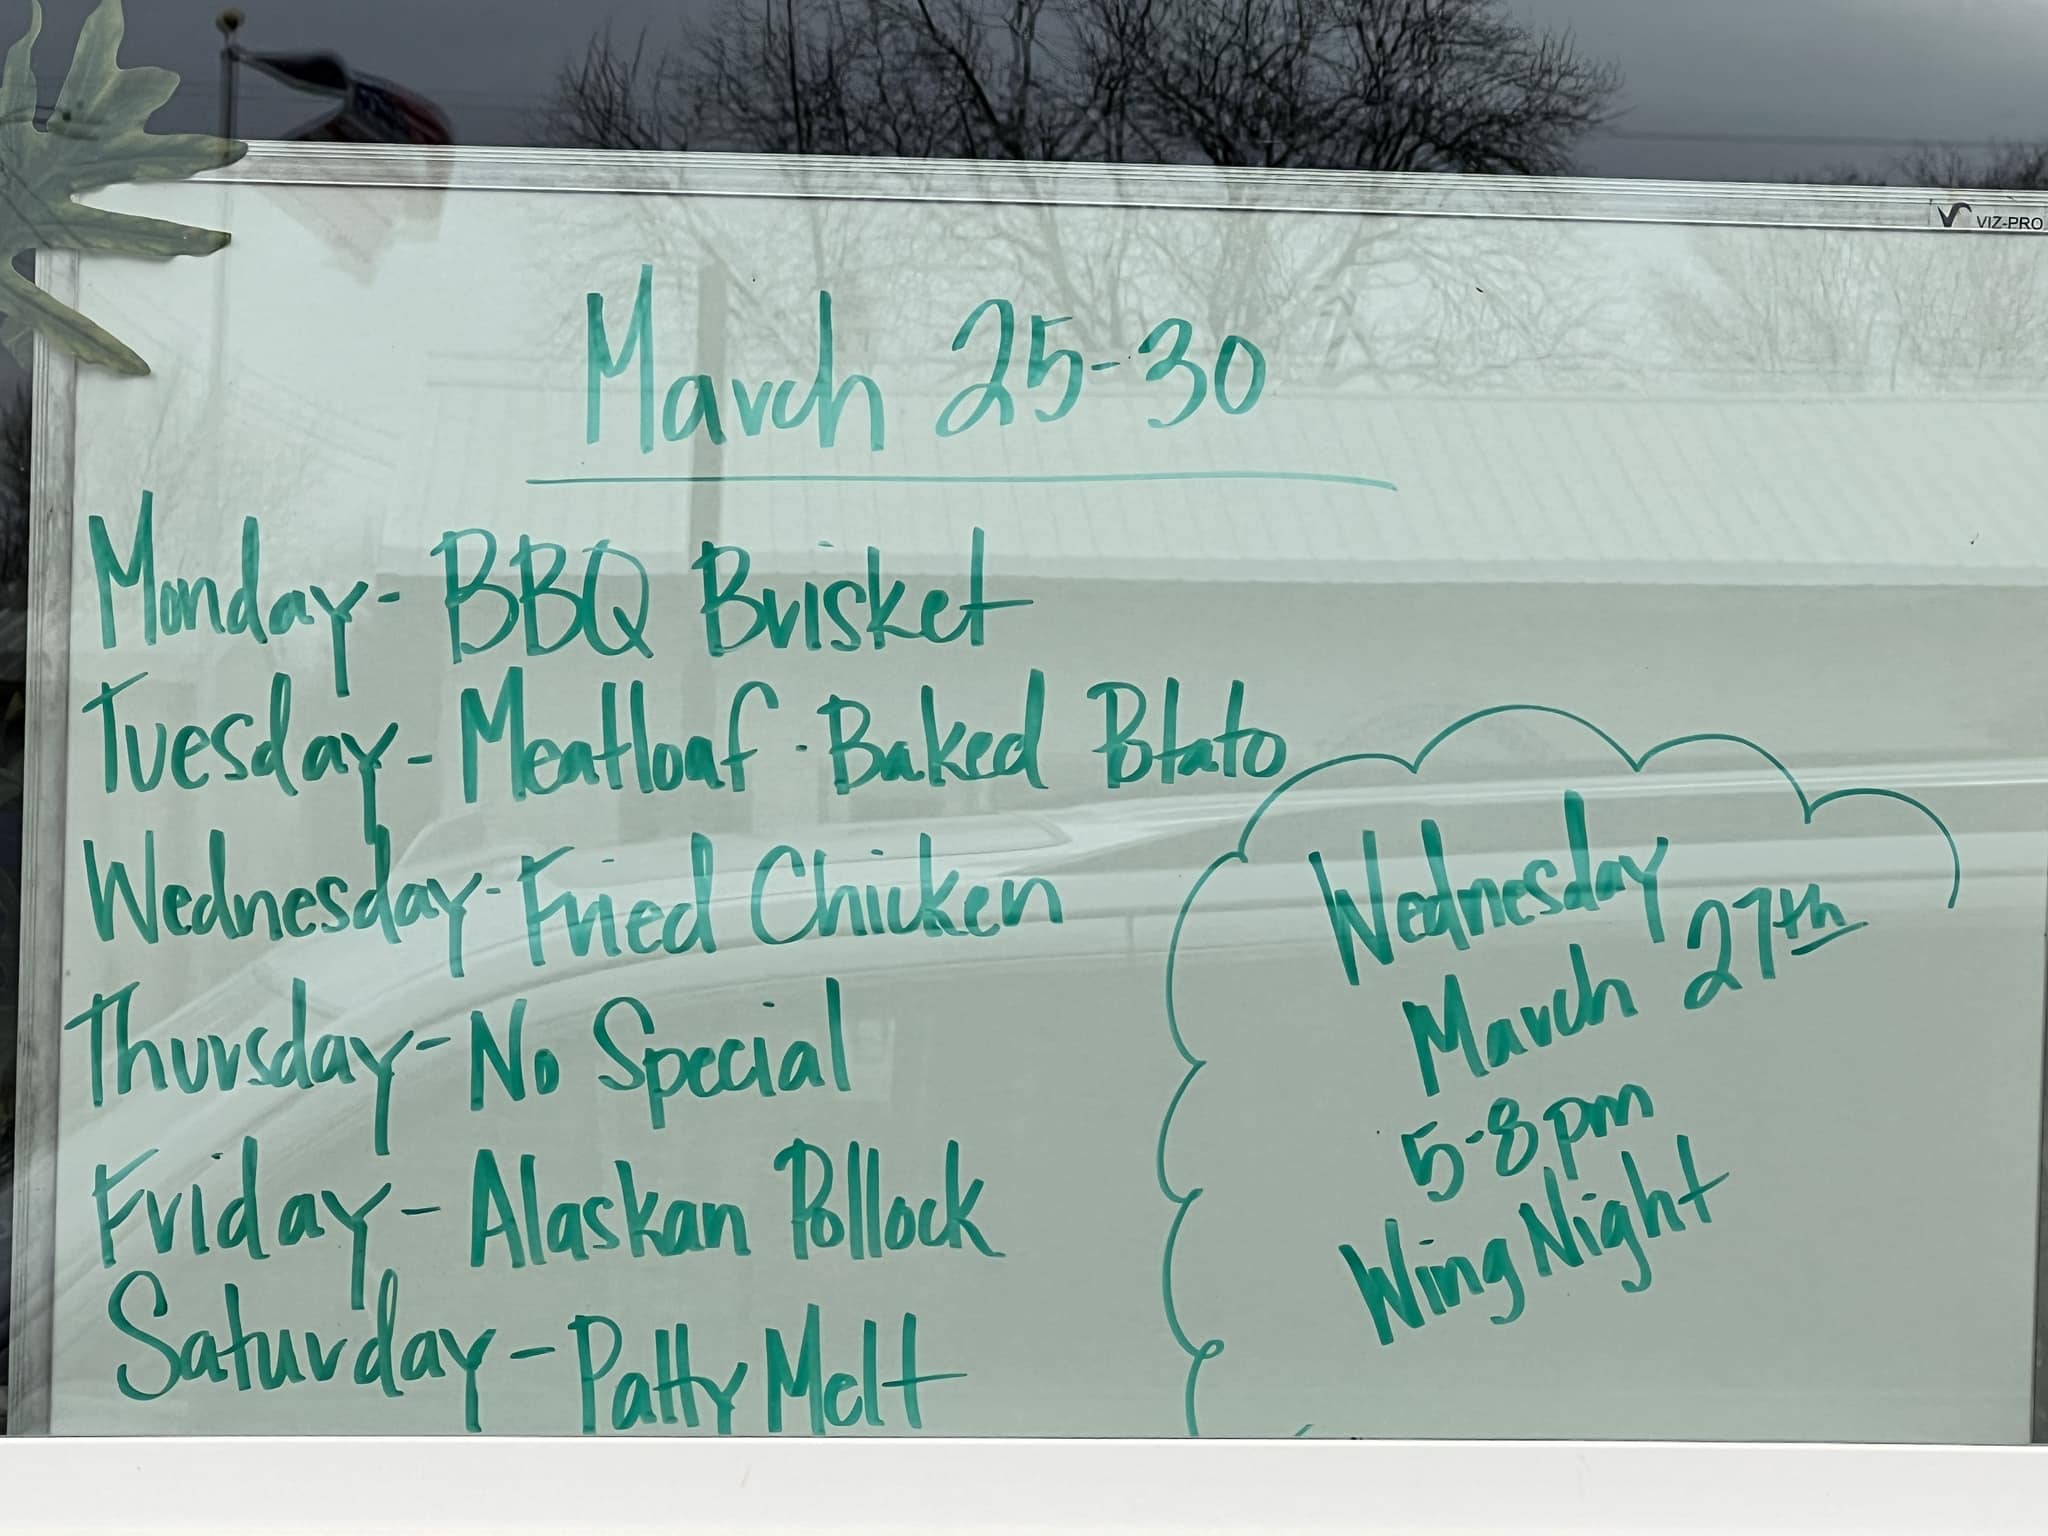 VIZ-PRO
March 25-30
Monday- BBQ Brisket
Tuesday- Meatloaf · Baked Potato
Wednesday- Fried Chicken
Thursday- No Special
Friday- Alaskan Pollock
Saturday- Patty Melt
Wednesday
March 27th
5-8pm
Wing Night